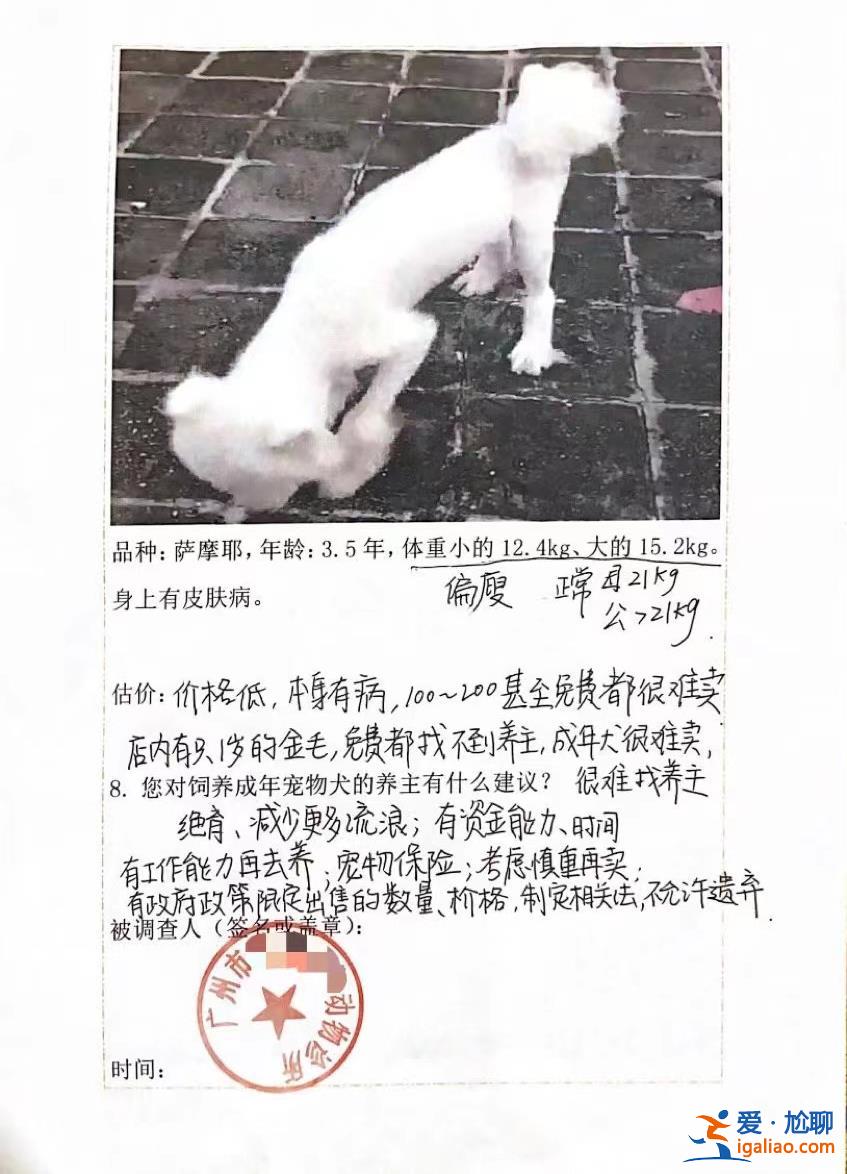 品种：萨摩耶，年龄：3.5年，体重小的12.4kg、大的15.2kg。
偏瘦 正常 母21kg
身上有皮肤病。
公>21kg.
估价：价格低，本身有病，100~200甚至免费都很难卖
店内有只1岁的金毛，免费都找不到养主，成年犬很难卖，
8. 您对饲养成年宠物犬的养主有什么建议？ 很难找养主
绝育、减少更多流浪；有资金能力、时间
有工作能力再去养；宠物保险；考虑慎重再卖；
有政府政策限定出售的数量、价格，制定相关法，不允许遗弃.
被调查人（签名或盖章）：
广州市
动物诊所
时间：
爱·尬聊
igaliao.com